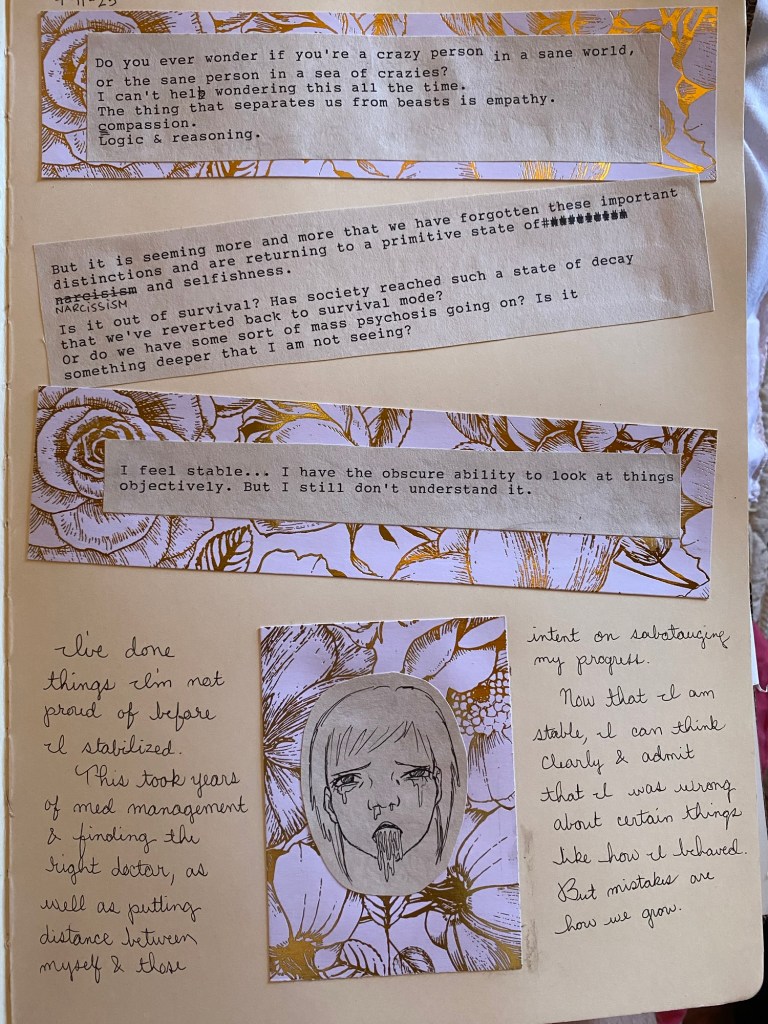 9-11-25
Do you ever wonder if you're a crazy person in a sane world,
or the sane person in a sea of crazies?
I can't help wondering this all the time.
The thing that separates us from beasts is empathy.
compassion.
Logic & reasoning.
But it is seeming more and more that we have forgotten these important
distinctions and are returning to a primitive state of
narcisism and selfishness.
NARCISSISM
Is it out of survival? Has society reached such a state of decay
that we've reverted back to survival mode?
Or do we have some sort of mass psychosis going on? Is it
something deeper that I am not seeing?
I feel stable... I have the obscure ability to look at things
objectively. But I still don't understand it.
I've done
things I'm not
proud of before
I stabilized.
This took years
of med management
& finding the
right doctor, as
well as putting
distance between
myself & those
intent on sabotauging
my progress.
Now that I am
stable, I can think
clearly & admit
that I was wrong
about certain things
like how I behaved.
But mistakes are
how we grow.